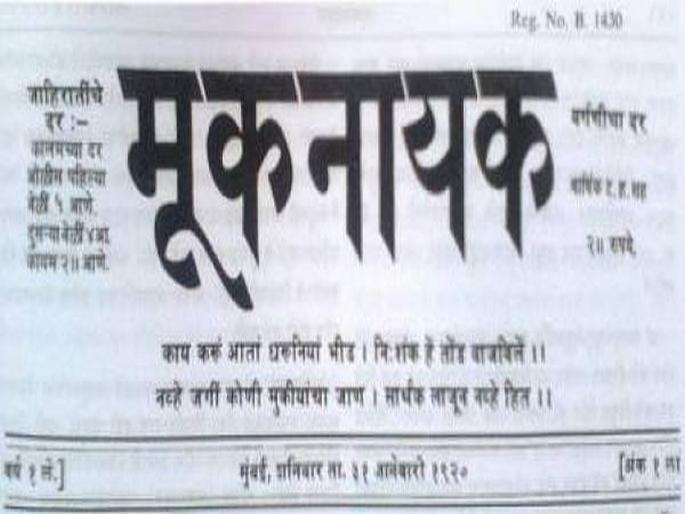 Reg. No. B. 1430
जाहिरातींचे
दर :-
कालमच्या दर
ओळीस पहिल्या
वेळीं ५ आणे.
दुसऱ्या वेळीं ४ आ.
कायम २॥ आणे.
मूकनायक
वर्गणीचा दर
वार्षिक ट. ह. सह
२॥ रुपये.
काय करूं आतां धरुनियां भीड । निःशंक हें तोंड वाजविलें ।।
नव्हे जगीं कोणी मुकीयांचा जाण । सार्थक लाजून नव्हे हित ।।
वर्ष १ लें.]
मुंबई, शनिवार ता. ३१ जानेवारी १९२०
[अंक १ ला